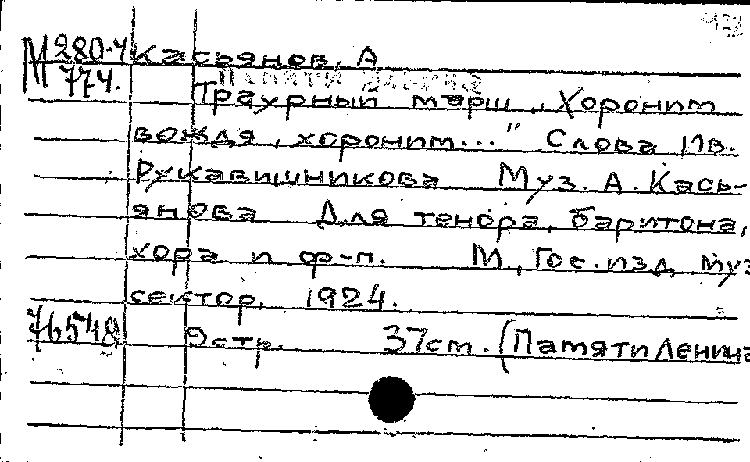 М 280-4 Касьянов, А
774.
Траурный марш „Хороним
вождя, хороним..." Слова Ив.
Рукавишникова Муз. А. Кась-
янова Для тенора, баритона,
хора и ф-п. М, Гос. изд, муз
сектор. 1924.
76548 9 стр. 37см. (Памяти Ленина